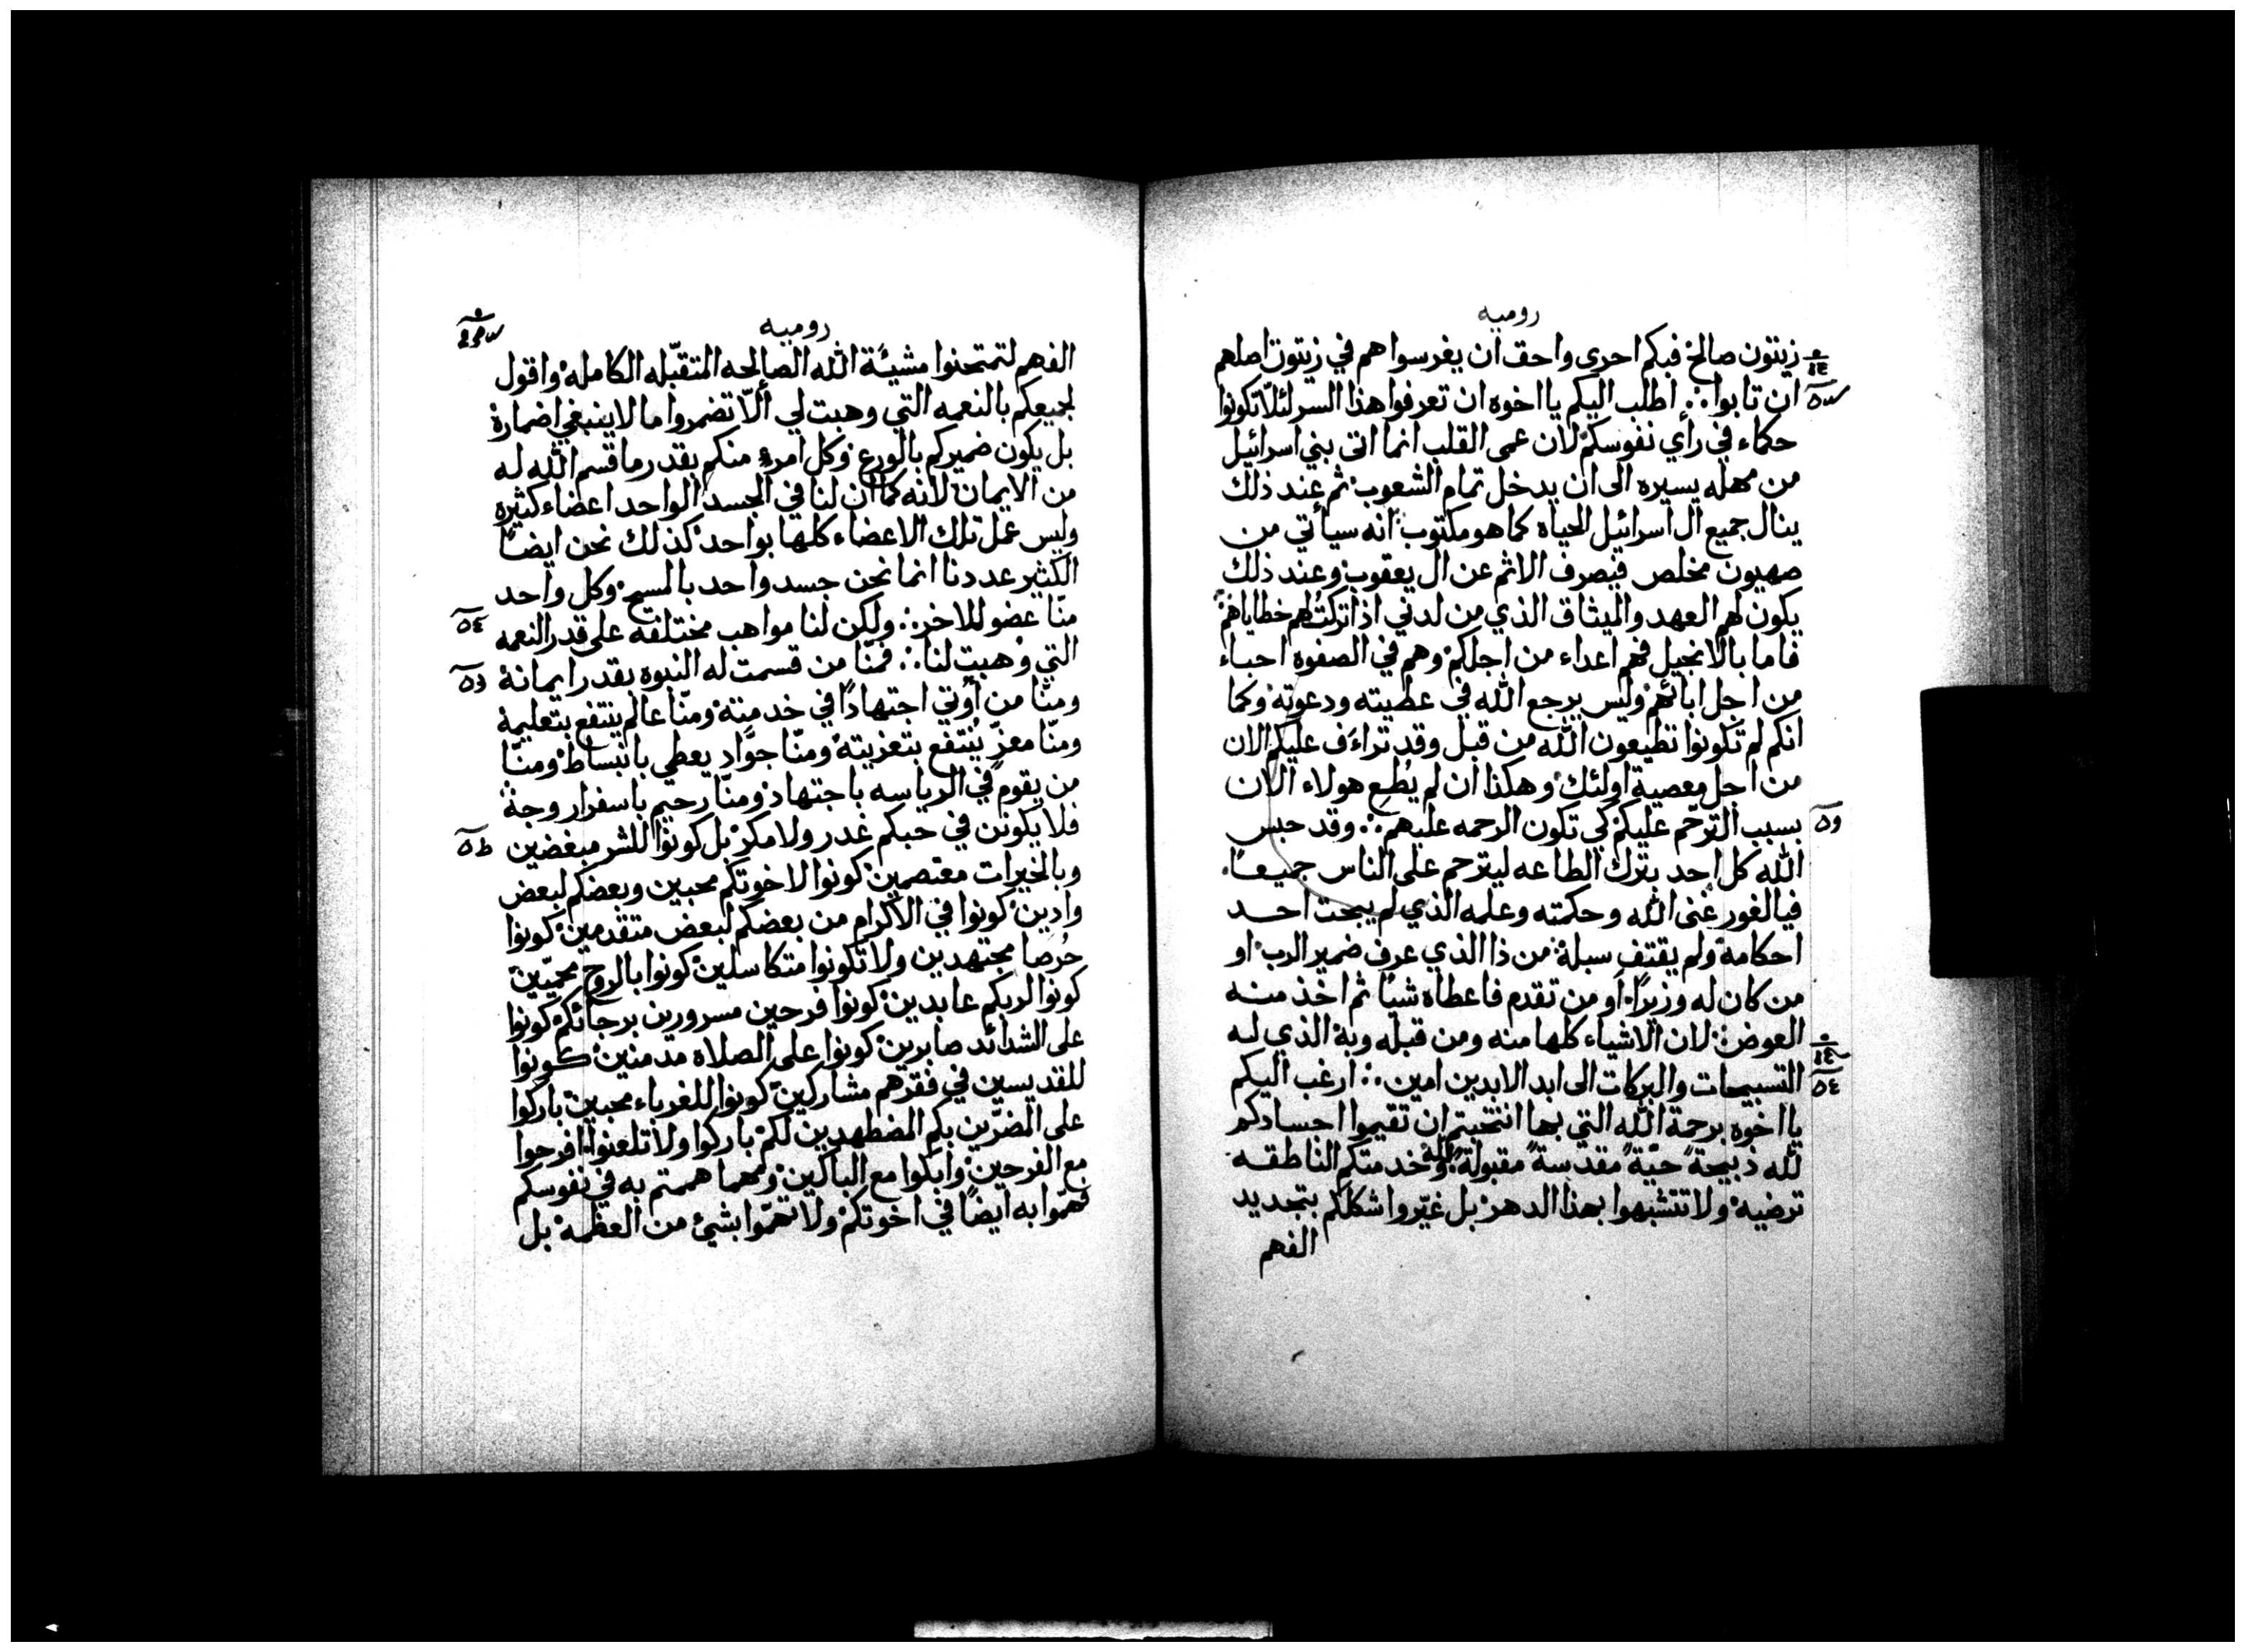 روميه
زيتون صالح فبكم احري واحق ان يغرسوا هم في زيتون اصلهم
ان تابوا ∴ اطلب اليكم يا اخوه ان تعرفوا هذا السر لئلا تكونوا
حكماء في رأي نفوسكم لان عمى القلب انما اتى بني اسرائيل
من مهله يسيره الى ان يدخل تمام الشعوب ثم عند ذلك
ينال جميع ال اسرائيل الحياه كما هو مكتوب انه سيأتي من
صهيون مخلص فيصرف الاثم عن ال يعقوب وعند ذلك
يكون لهم العهد والميثاق الذي من لدني اذا تركت لهم خطاياهم
فاما بالانجيل فهم اعداء من اجلكم وهم في الصفوه احباء
من اجل ابائهم وليس يرجع الله في عطيته ودعوته وكما
انكم لم تكونوا تطيعون الله من قبل وقد تراءف عليكم الان
من اجل معصية اولئك وهكذا ان لم يُطع هولاء الان
بسبب الترحّم عليكم كي تكون الرحمه عليهم ∴ وقد حبس
الله كل احد بترك الطاعه ليترحم على الناس جميعًا
فيالغور غنى الله وحكمته وعلمه الذي لم يبحث احد
احكامه ولم يقتف سبله من ذا الذي عرف ضمير الرب او
من كان له وزيرًا او من تقدم فاعطاه شيًا ثم اخذ منه
العوض لان الاشياء كلها منه ومن قبله وبه الذي له
التسبيحات والبركات الى ابد الابدين امين ∴ ارغب اليكم
يا اخوه برحمة الله التي بها انتخبتم ان تقيموا اجسادكم
لله ذبيحة حيّة مقدسة مقبولة لله وخدمتكم الناطقه
ترضيه ولا تتشبهوا بهذا الدهر بل غيّروا شكلكم بتجديد
الفهم
روميه
الفهم لتمتحنوا مشيئة الله الصالحه المتقبّله الكامله واقول
لجميعكم بالنعمه التي وهبت لي ألّا تضمروا ما لا ينبغي اضماره
بل يكون ضميركم بالورع وكل امرء منكم بقدر ما قسم الله له
من الايمان لانه كما ان لنا في الجسد الواحد اعضاء كثيره
وليس عمل تلك الاعضاء كلها بواحد كذلك نحن ايضًا
الكثير عددنا انما نحن جسد واحد بالمسيح وكل واحد
منّا عضو للاخر ∴ ولكن لنا مواهب مختلفه على قدر النعمه
التي وُهبت لنا ∴ فمنّا من قسمت له النبوه بقدر ايمانه
ومنّا من أوتي اجتهادًا في خدمته ومنّا عالم ينتفع بتعليمه
ومنّا معزّ يُنتفع بتعزيته ومنّا جوّاد يعطي بانبساط ومنّا
من يقوم في الرياسه باجتهاد ومنّا رحيم باسفرار وجه
فلا يكونن في حبكم غدر ولا مكر بل كونوا للشر مبغضين
وبالخيرات معتصمين كونوا لاخوتكم محبين وبعضكم لبعض
وادين كونوا في الاكرام من بعضكم لبعض متقدمين كونوا
حُرصا مجتهدين ولا تكونوا متكاسلين كونوا بالروح محميّين
كونوا لربكم عابدين كونوا فرحين مسرورين برجائكم كونوا
على الشدائد صابرين كونوا على الصلاه مدمنين كونوا
للقديسين في فقرهم مشاركين كونوا للغرباء محبين باركوا
على المضرّين بكم المضطهدين لكم باركوا ولا تلعنوا افرحوا
مع الفرحين وابكوا مع الباكين ومهما هممتم به في نفوسكم
فهمّوا به ايضًا في اخوتكم ولا تهمّوا بشئ من العظمه بل